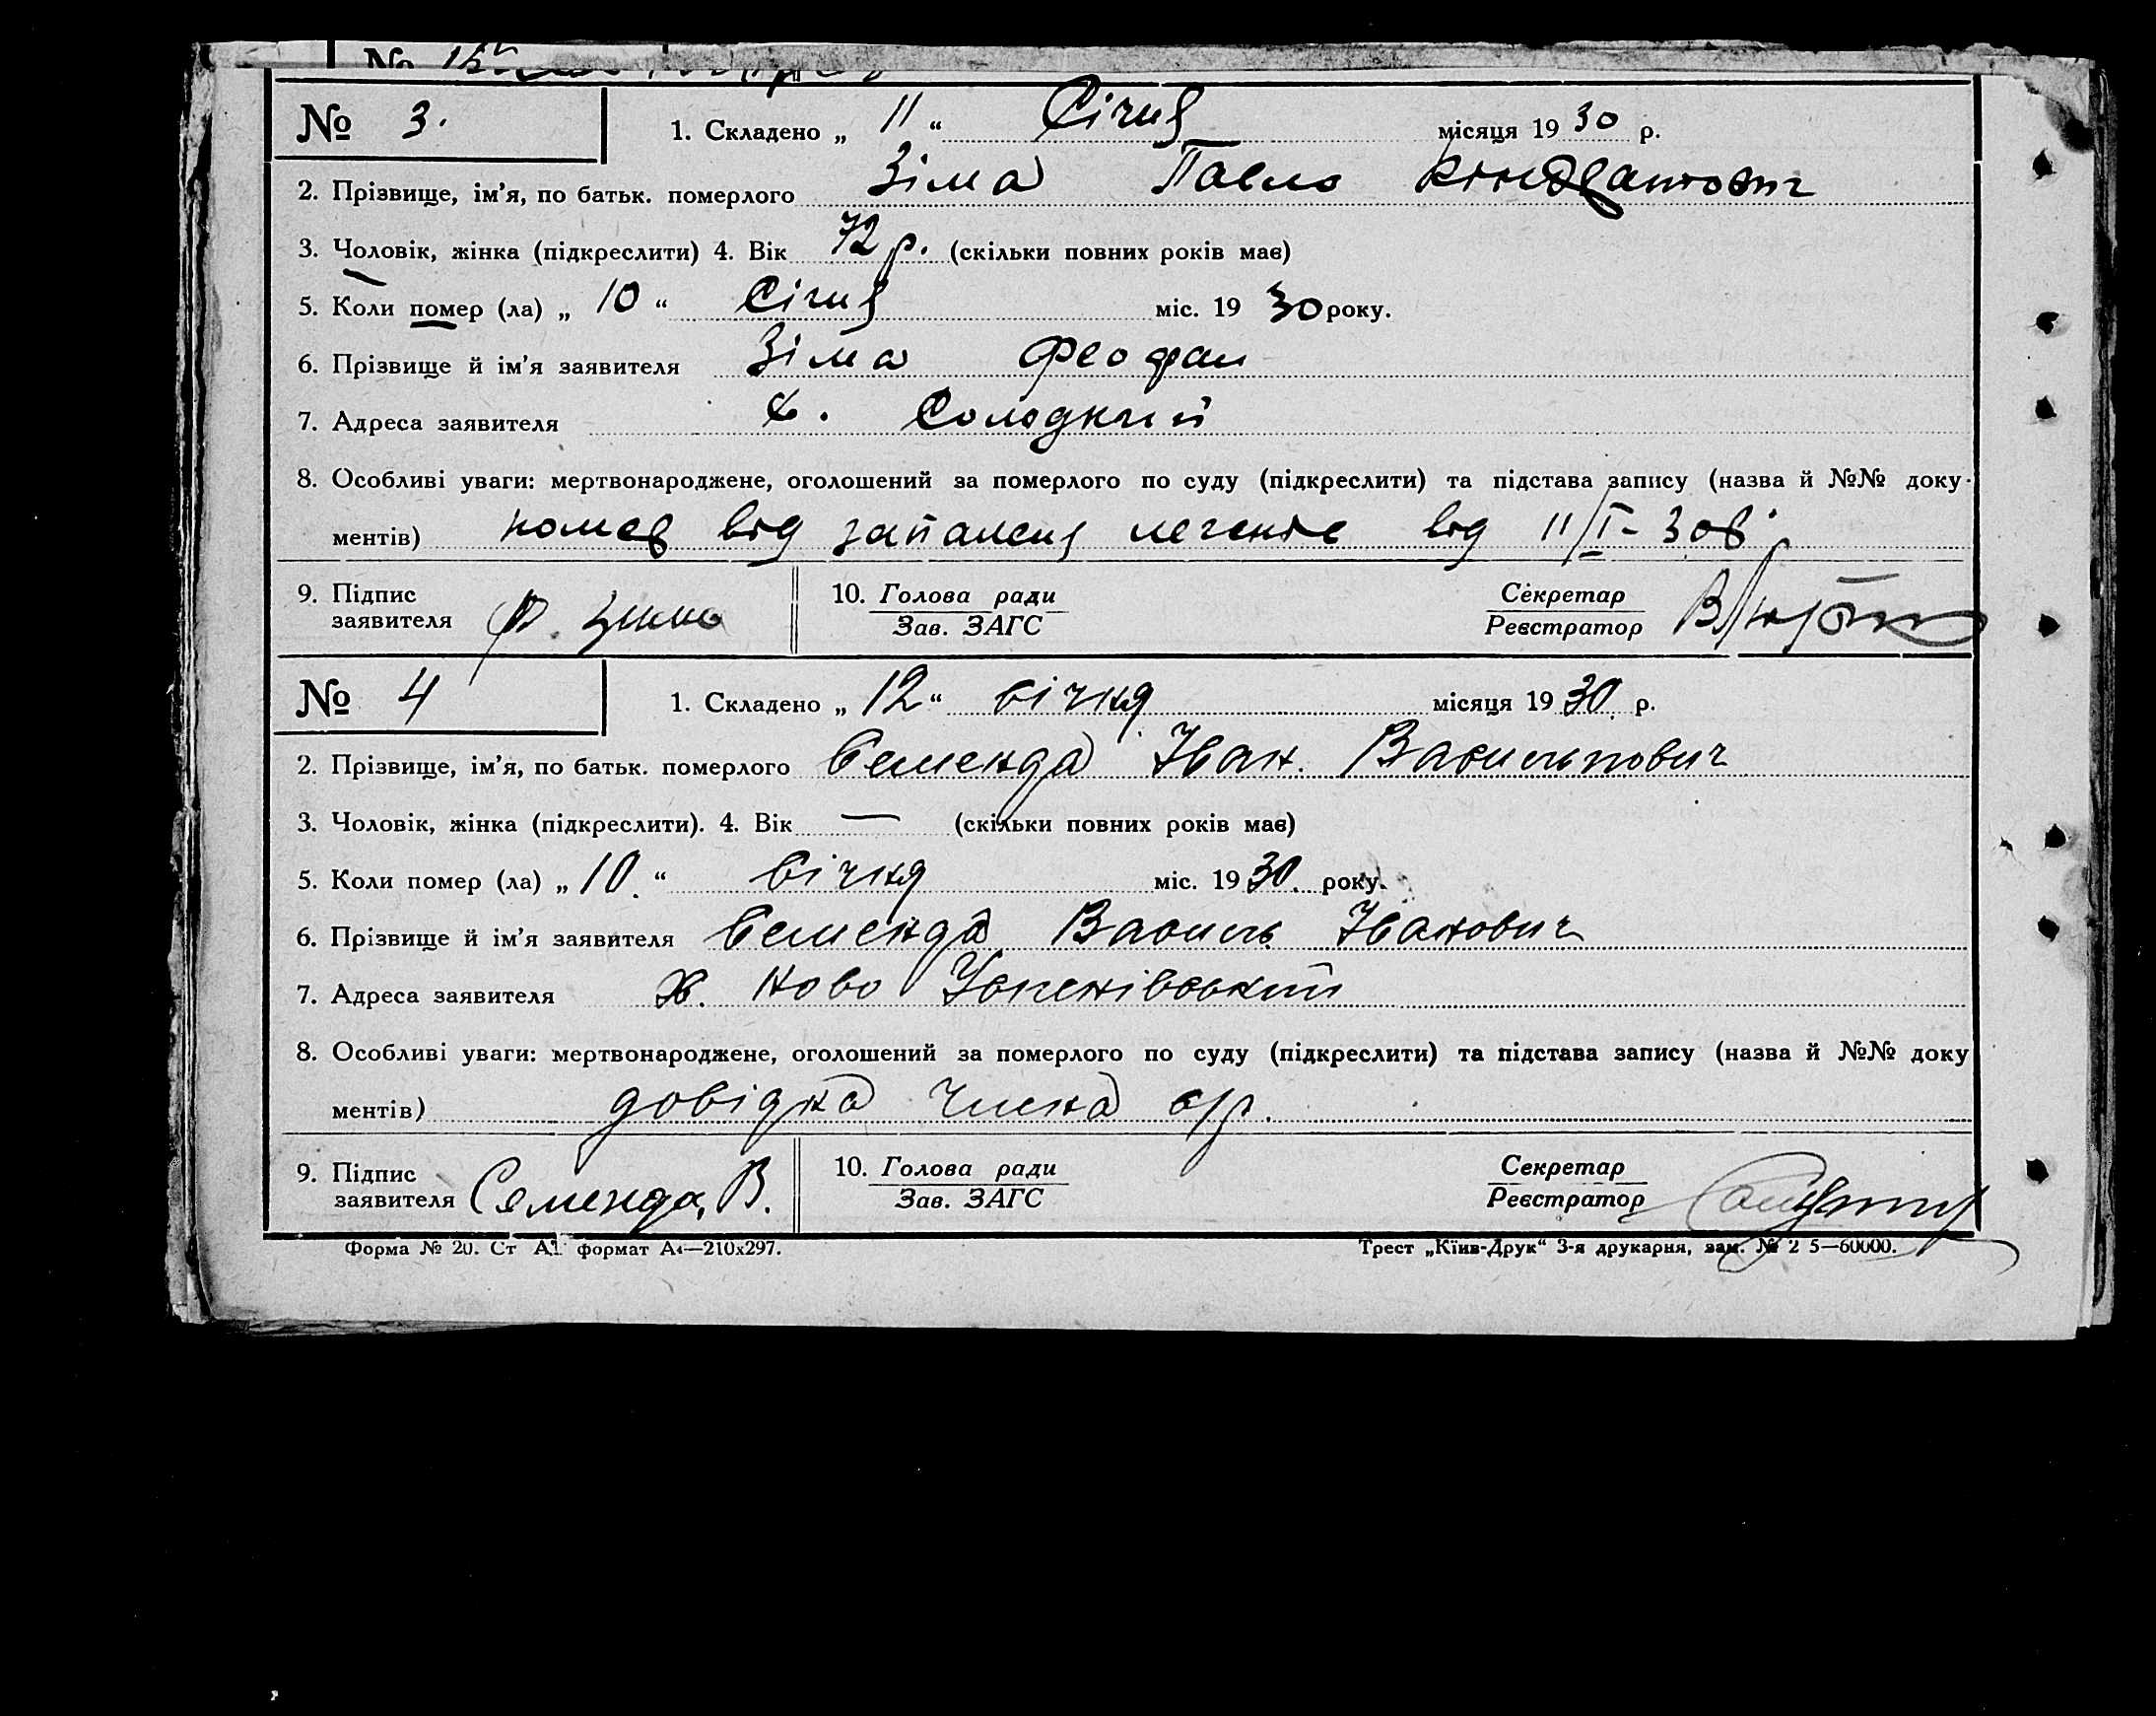 №
№ 3. 1. Складено „ 11 “ Січня місяця 19 30 р.
2. Прізвище, ім’я, по батьк. померлого Зіма Павло Кіндратович
3. Чоловік, жінка (підкреслити) 4. Вік 72 р. (скільки повних років має)
5. Коли помер (ла) „ 10 “ Січня міс. 19 30 року.
6. Прізвище й ім’я заявителя Зіма Феофан
7. Адреса заявителя х. Солодкий
8. Особливі уваги: мертвонароджене, оголошений за померлого по суду (підкреслити) та підстава запису (назва й №№ доку-
ментів) помер від запаленя легенів від 11/I-30р.
9. Підпис 10. Голова ради Секретар
заявителя Ф. Зима Зав. ЗАГС Реєстратор
№ 4 1. Складено „ 12 “ січня місяця 19 30. р.
2. Прізвище, ім’я, по батьк. померлого Семенда Іван. Васильпович
3. Чоловік, жінка (підкреслити). 4. Вік — (скільки повних років має)
5. Коли помер (ла) „ 10. “ січня міс. 19 30. року.
6. Прізвище й ім’я заявителя Семенда Василь Іванович
7. Адреса заявителя х. Ново Успенівський
8. Особливі уваги: мертвонароджене, оголошений за померлого по суду (підкреслити) та підстава запису (назва й №№ доку
ментів) довідка члена с/р.
9. Підпис 10. Голова ради Секретар
заявителя Семенда, В. Зав. ЗАГС Реєстратор
Форма № 20. Ст А1 формат А4—210х297. Трест „Київ-Друк“ 3-я друкарня, зам. № 2 5—60000.